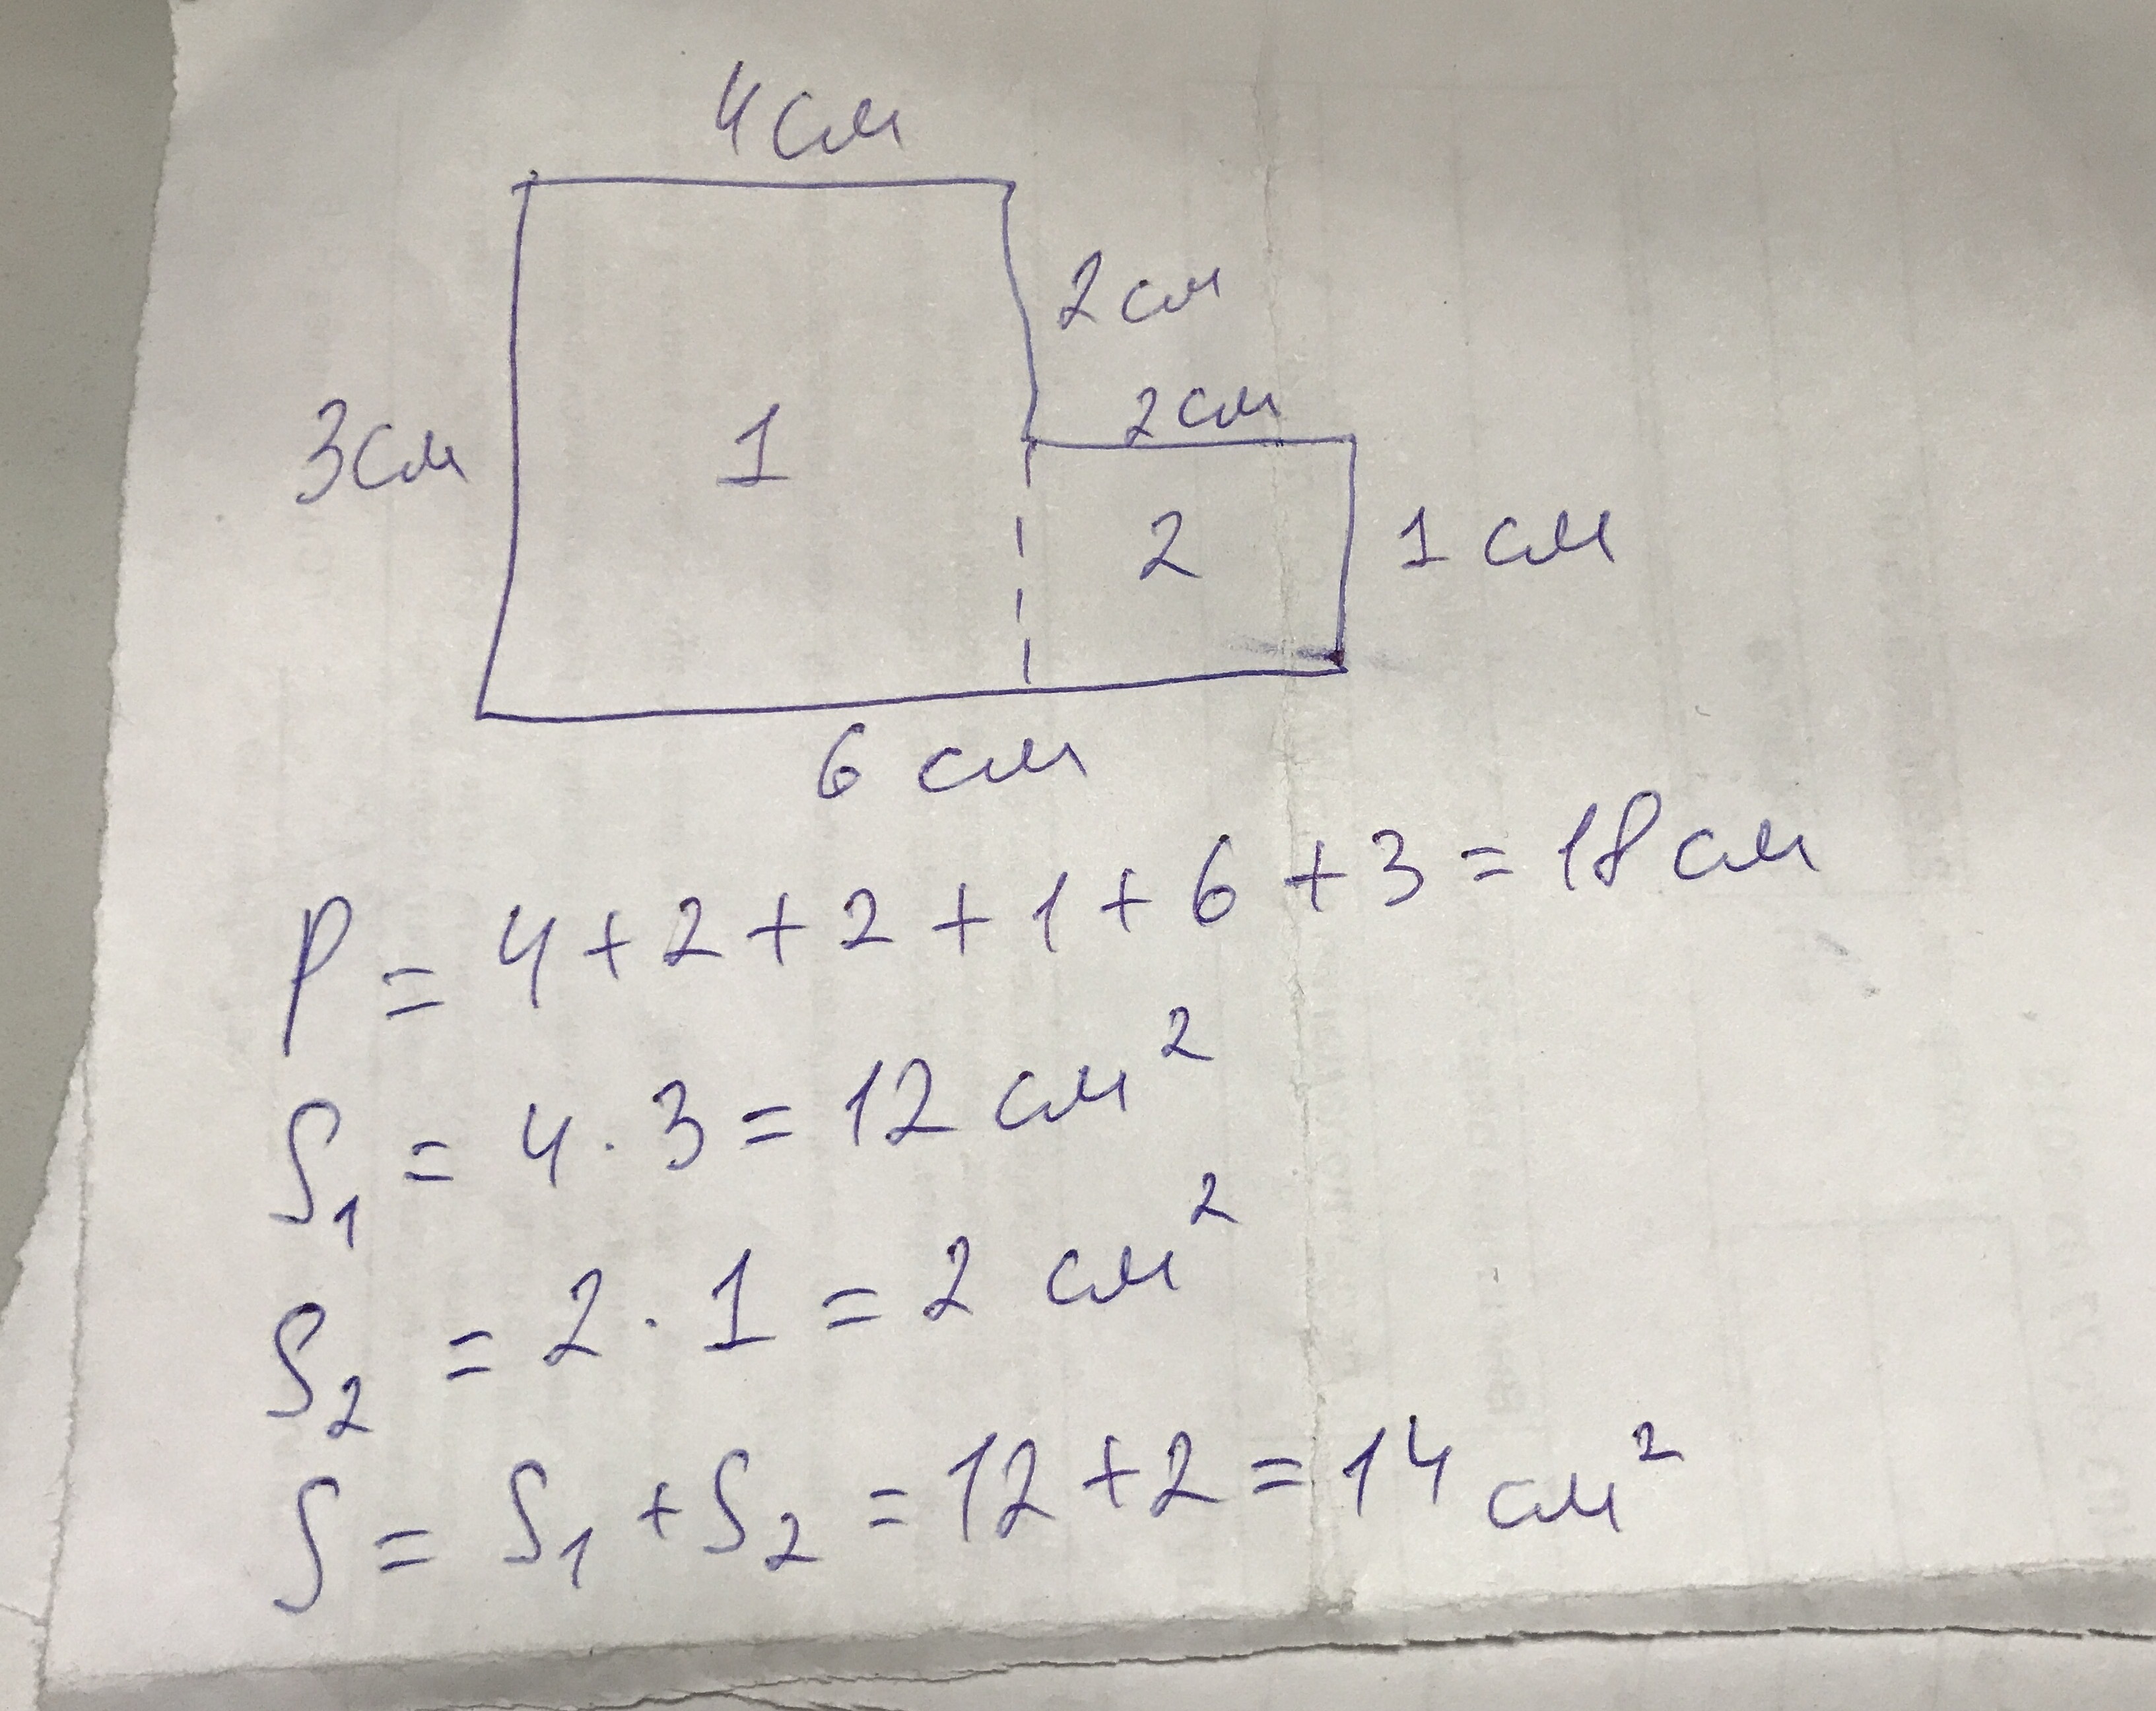 4 см
2 см
2 см
3 см
1
2
1 см
6 см
P = 4 + 2 + 2 + 1 + 6 + 3 = 18 см
S₁ = 4 · 3 = 12 см²
S₂ = 2 · 1 = 2 см²
S = S₁ + S₂ = 12 + 2 = 14 см²